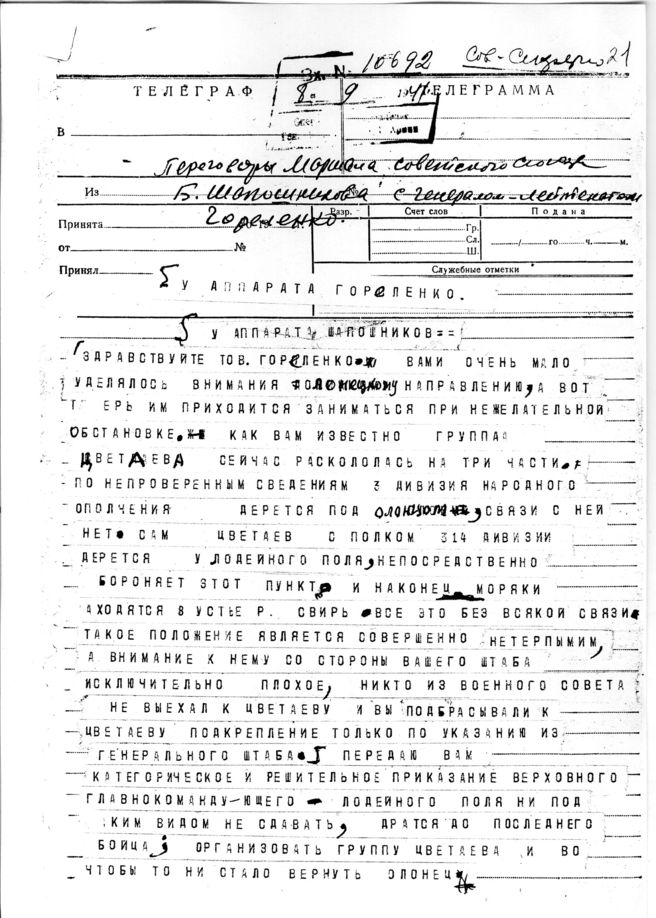 Сов. Секретно 21
Эк. N. 10692
8. 9 1941
ТЕЛЕГРАФ ТЕЛЕГРАММА
В
Переговоры Маршала Советского Союза
Из Б. Шапошникова с генералом-лейтенантом
Гореленко.
Принята Разр. Счет слов Подана
от № Гр. / го ч. м.
Сл.
Ш.
Принял Служебные отметки
У АППАРАТА ГОРЕЛЕНКО.
У АППАРАТА ШАПОШНИКОВ==
ЗДРАВСТВУЙТЕ ТОВ. ГОРЕЛЕНКО ВАМИ ОЧЕНЬ МАЛО
УДЕЛЯЛОСЬ ВНИМАНИЯ ОЛОНЕЦКОМУ НАПРАВЛЕНИЮ, А ВОТ
Т ЕРЬ ИМ ПРИХОДИТСЯ ЗАНИМАТЬСЯ ПРИ НЕЖЕЛАТЕЛЬНОЙ
ОБСТАНОВКЕ. КАК ВАМ ИЗВЕСТНО ГРУППА
ЦВЕТАЕВА СЕЙЧАС РАСКОЛОЛАСЬ НА ТРИ ЧАСТИ.
ПО НЕПРОВЕРЕННЫМ СВЕДЕНИЯМ 3 ДИВИЗИЯ НАРОДНОГО
ОПОЛЧЕНИЯ ДЕРЕТСЯ ПОД ОЛОНЦОМ, СВЯЗИ С НЕЙ
НЕТ. САМ ЦВЕТАЕВ С ПОЛКОМ 314 ДИВИЗИИ
ДЕРЕТСЯ У ЛОДЕЙНОГО ПОЛЯ, НЕПОСРЕДСТВЕННО
БОРОНЯЕТ ЭТОТ ПУНКТ, И НАКОНЕЦ МОРЯКИ
АХОДЯТСЯ В УСТЬЕ Р. СВИРЬ. ВСЕ ЭТО БЕЗ ВСЯКОЙ СВЯЗИ.
ТАКОЕ ПОЛОЖЕНИЕ ЯВЛЯЕТСЯ СОВЕРШЕННО НЕТЕРПЫМИМ,
А ВНИМАНИЕ К НЕМУ СО СТОРОНЫ ВАШЕГО ШТАБА
ИСКЛЮЧИТЕЛЬНО ПЛОХОЕ, НИКТО ИЗ ВОЕННОГО СОВЕТА
НЕ ВЫЕХАЛ К ЦВЕТАЕВУ И ВЫ ПОДБРАСЫВАЛИ К
ЦВЕТАЕВУ ПОДКРЕПЛЕНИЕ ТОЛЬКО ПО УКАЗАНИЮ ИЗ
ГЕНЕРАЛЬНОГО ШТАБА. ПЕРЕДАЮ ВАМ
КАТЕГОРИЧЕСКОЕ И РЕШИТЕЛЬНОЕ ПРИКАЗАНИЕ ВЕРХОВНОГО
ГЛАВНОКОМАНДУ-ЮЩЕГО - ЛОДЕЙНОГО ПОЛЯ НИ ПОД
КИМ ВИДОМ НЕ СДАВАТЬ, ДРАТСЯ ДО ПОСЛЕДНЕГО
БОЙЦА; ОРГАНИЗОВАТЬ ГРУППУ ЦВЕТАЕВА И ВО
ЧТОБЫ ТО НИ СТАЛО ВЕРНУТЬ ОЛОНЕЦ.